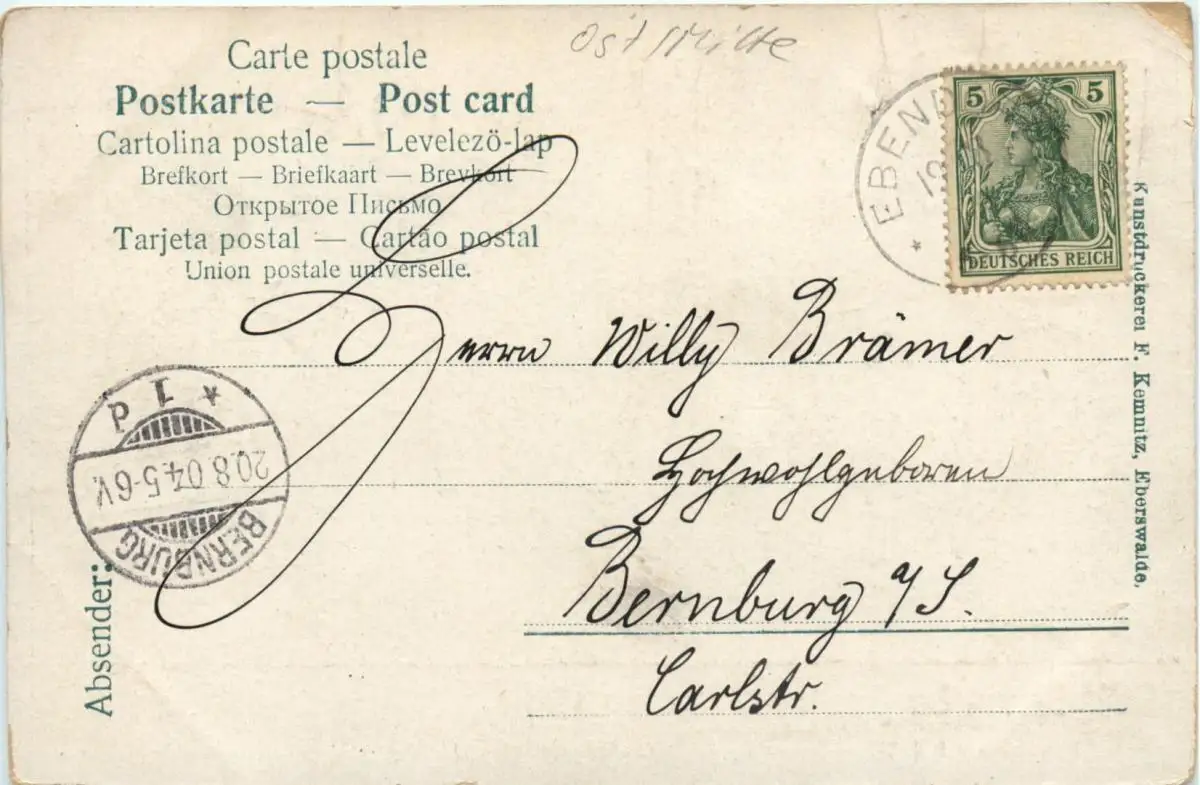 Ost / Mitte
Carte postale
Postkarte — Post card
Cartolina postale — Levelezö-lap
Brefkort — Briefkaart — Brevkort
Открытое Письмо
Tarjeta postal — Cartão postal
Union postale universelle.
5 5
DEUTSCHES REICH
EBEND
19
Herrn Willy Brämer
Hochwohlgeboren
Bernburg a/S.
Carlstr.
* 1 d
20.8.04.5-6V.
BERNBURG
Absender:
Kunstdruckerei F. Kemnitz, Eberswalde.